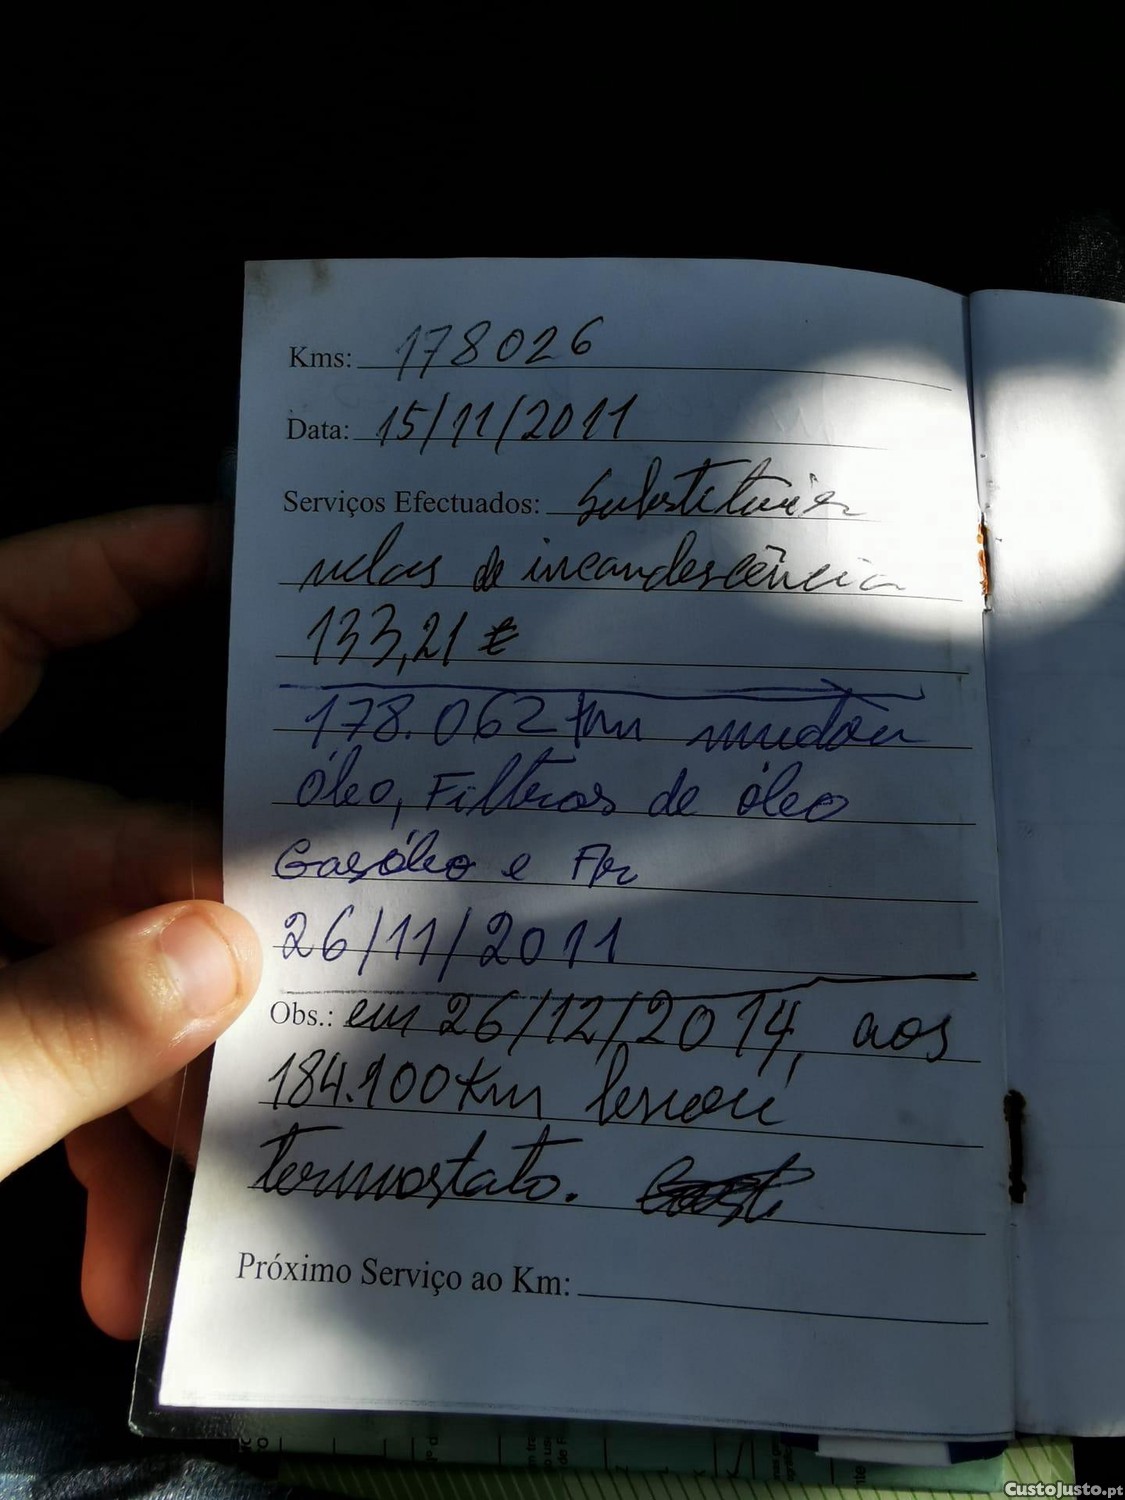 Kms: 178026
Data: 15/11/2011
Serviços Efectuados:
velas de incandescência
133,21 €
178.062 Km mudou
óleo, Filtros de óleo
Gasóleo e Ar
26/11/2011
Obs.: em 26/12/2014, aos
184.100 Km levou
termostato.
Próximo Serviço ao Km:
CustoJusto.pt